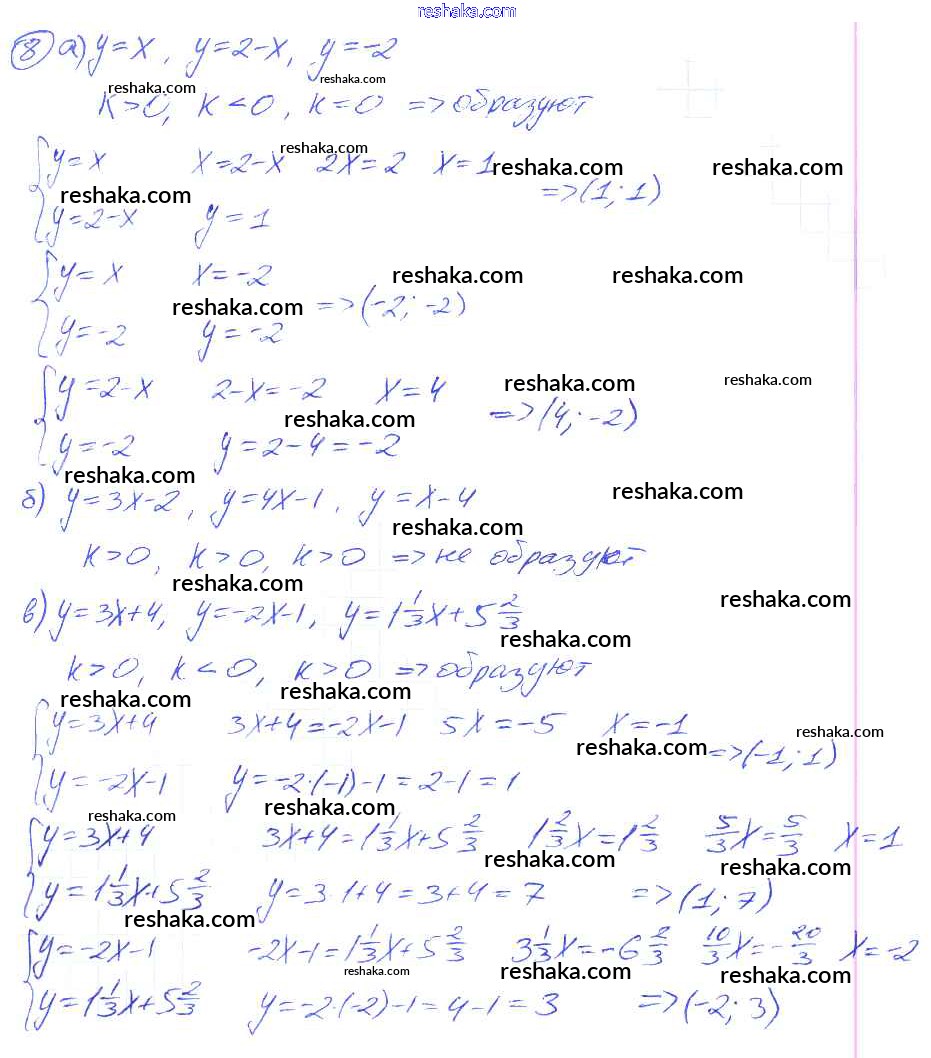 reshaka.com
8 а) y=x, y=2-x, y=-2
reshaka.com reshaka.com
k>0, k<0, k=0 => образуют
reshaka.com
{y=x x=2-x 2x=2 x=1
reshaka.com reshaka.com
reshaka.com =>(1; 1)
y=2-x y=1
{y=x x=-2
reshaka.com reshaka.com
reshaka.com =>(-2; -2)
y=-2 y=-2
{y=2-x 2-x=-2 x=4
reshaka.com reshaka.com
reshaka.com =>(4; -2)
y=-2 y=2-4=-2
reshaka.com
б) y=3x-2, y=4x-1, y=x-4
reshaka.com
reshaka.com
k>0, k>0, k>0 => не образуют
reshaka.com
в) y=3x+4, y=-2x-1, y=1 1/3x+5 2/3
reshaka.com
reshaka.com
k>0, k<0, k>0 => образуют
reshaka.com reshaka.com
{y=3x+4 3x+4=-2x-1 5x=-5 x=-1
reshaka.com reshaka.com
=>(-1; 1)
y=-2x-1 y=-2·(-1)-1=2-1=1
reshaka.com reshaka.com
{y=3x+4 3x+4=1 1/3x+5 2/3 1 2/3x=1 2/3 5/3x=5/3 x=1
reshaka.com reshaka.com
y=1 1/3x+5 2/3 y=3·1+4=3+4=7 =>(1; 7)
reshaka.com
{y=-2x-1 -2x-1=1 1/3x+5 2/3 3 1/3x=-6 2/3 10/3x=-20/3 x=-2
reshaka.com reshaka.com reshaka.com
y=1 1/3x+5 2/3 y=-2·(-2)-1=4-1=3 =>(-2; 3)